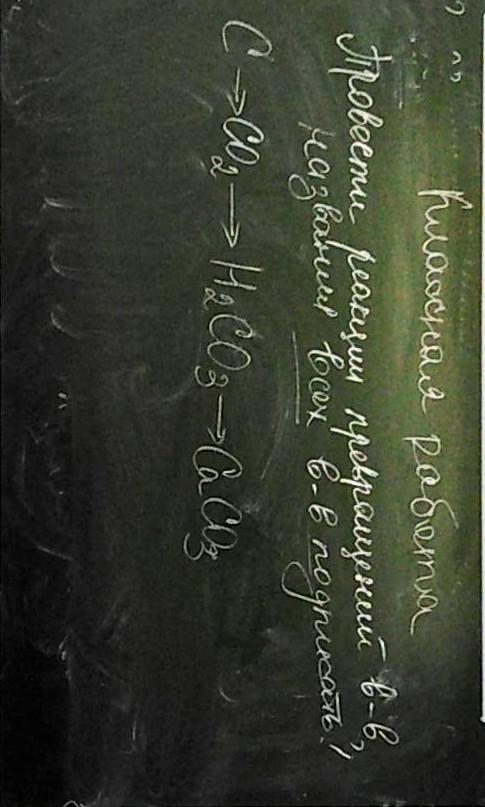 Классная работа
Провести реакции превращений в-в,
названия всех в-в подписать!
C → CO₂ → H₂CO₃ → CaCO₃